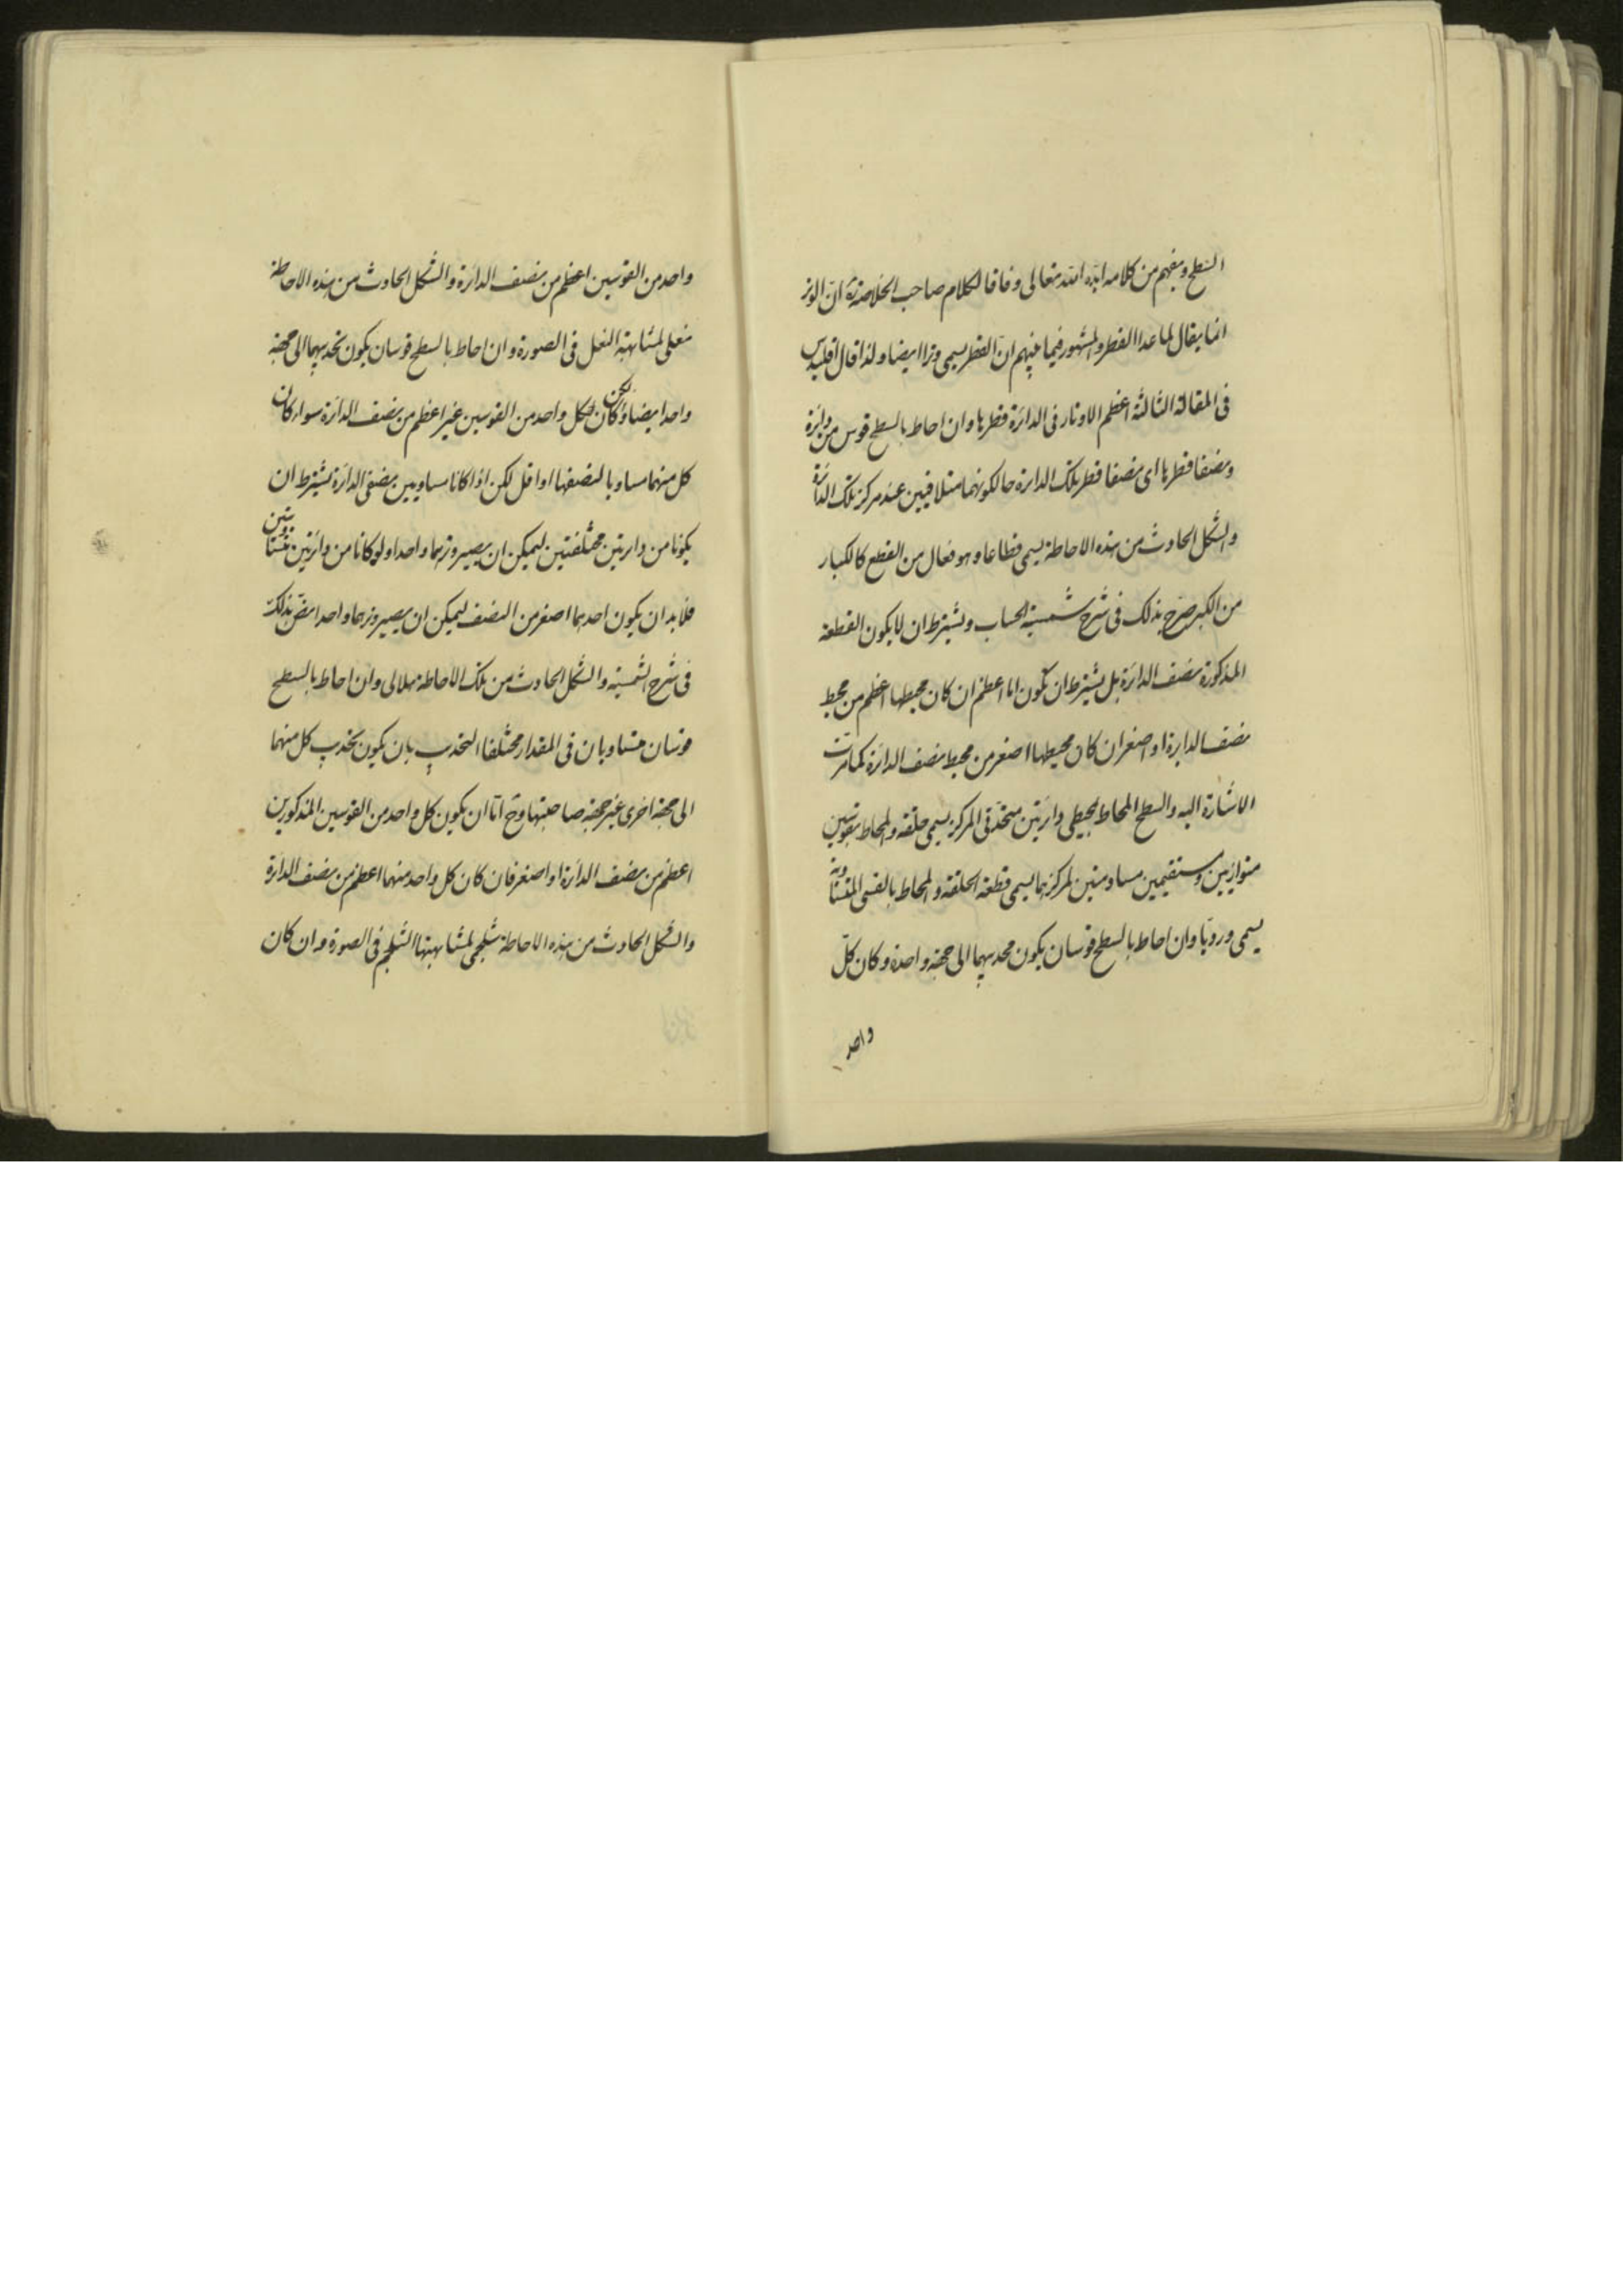 السطح ويفهم من كلامه ايده الله تعالى وفاقا لكلام صاحب الخلاصة ره ان الوتر
انما يقال لما عدا القطر والمشهور فيما بينهم ان القطر يسمى وترا ايضا ولذا قال اقليدس
فى المقالة الثالثة اعظم الاوتار فى الدائرة قطرها وان احاط بالسطح قوس من دائرة
ونصفا قطرها اى نصفا قطر تلك الدائرة حالكونهما متلاقيين عند مركز تلك الدائرة
والشكل الحادث من هذه الاحاطة يسمى قطاعا وهو فعال من القطع كالكبار
من الكبر صرح بذلك فى شرح شمسية الحساب ويشترط ان لا يكون القطعة
المذكورة نصف الدائرة بل يشترط ان يكون اما اعظم ان كان محيطها اعظم من محيط
نصف الدايرة او اصغر ان كان محيطها اصغر من محيط نصف الدائرة كما مرت
الاشارة اليه والسطح المحاط بمحيطى دائرتين متحدتى المركز يسمى حلقة والمحاط بقوسين
متوازيين ومستقيمين مسامتين لمركزهما يسمى قطعة الحلقة والمحاط بالقسى المتساوية
يسمى ورديا وان احاط بالسطح قوسان يكون محدبهما الى جهة واحدة وكان كل
واحد
واحد من القوسين اعظم من نصف الدائرة والشكل الحادث من هذه الاحاطة
نعلى لمشابهة النعل فى الصورة وان احاط بالسطح قوسان يكون تحديبهما الى جهة
واحدا ايضا ولكن كان كل واحد من القوسين غير اعظم من نصف الدائرة سواء كان
كل منهما مساويا لنصفها او اقل لكن اذا كانا مساويين نصفى الدائرة يشترط ان
يكونا من دايرتين مختلفتين ليمكن ان يصير وترهما واحدا ولو كانا من دائرتين متساويتين
فلا بد ان يكون احدهما اصغر من النصف ليمكن ان يصير وترهما واحدا نص بذلك
فى شرح الشمسية والشكل الحادث من تلك الاحاطة هلالى وان احاط بالسطح
قوسان متساويان فى المقدار مختلفا التحديب بان يكون تحديب كل منهما
الى جهة اخرى غير جهة صاحبتها وح اما ان يكون كل واحد من القوسين المذكورين
اعظم من نصف الدائرة او اصغر فان كان كل واحد منهما اعظم من نصف الدائرة
والشكل الحادث من هذه الاحاطة شلجمى لمشابهتها الشلجم فى الصورة وان كان